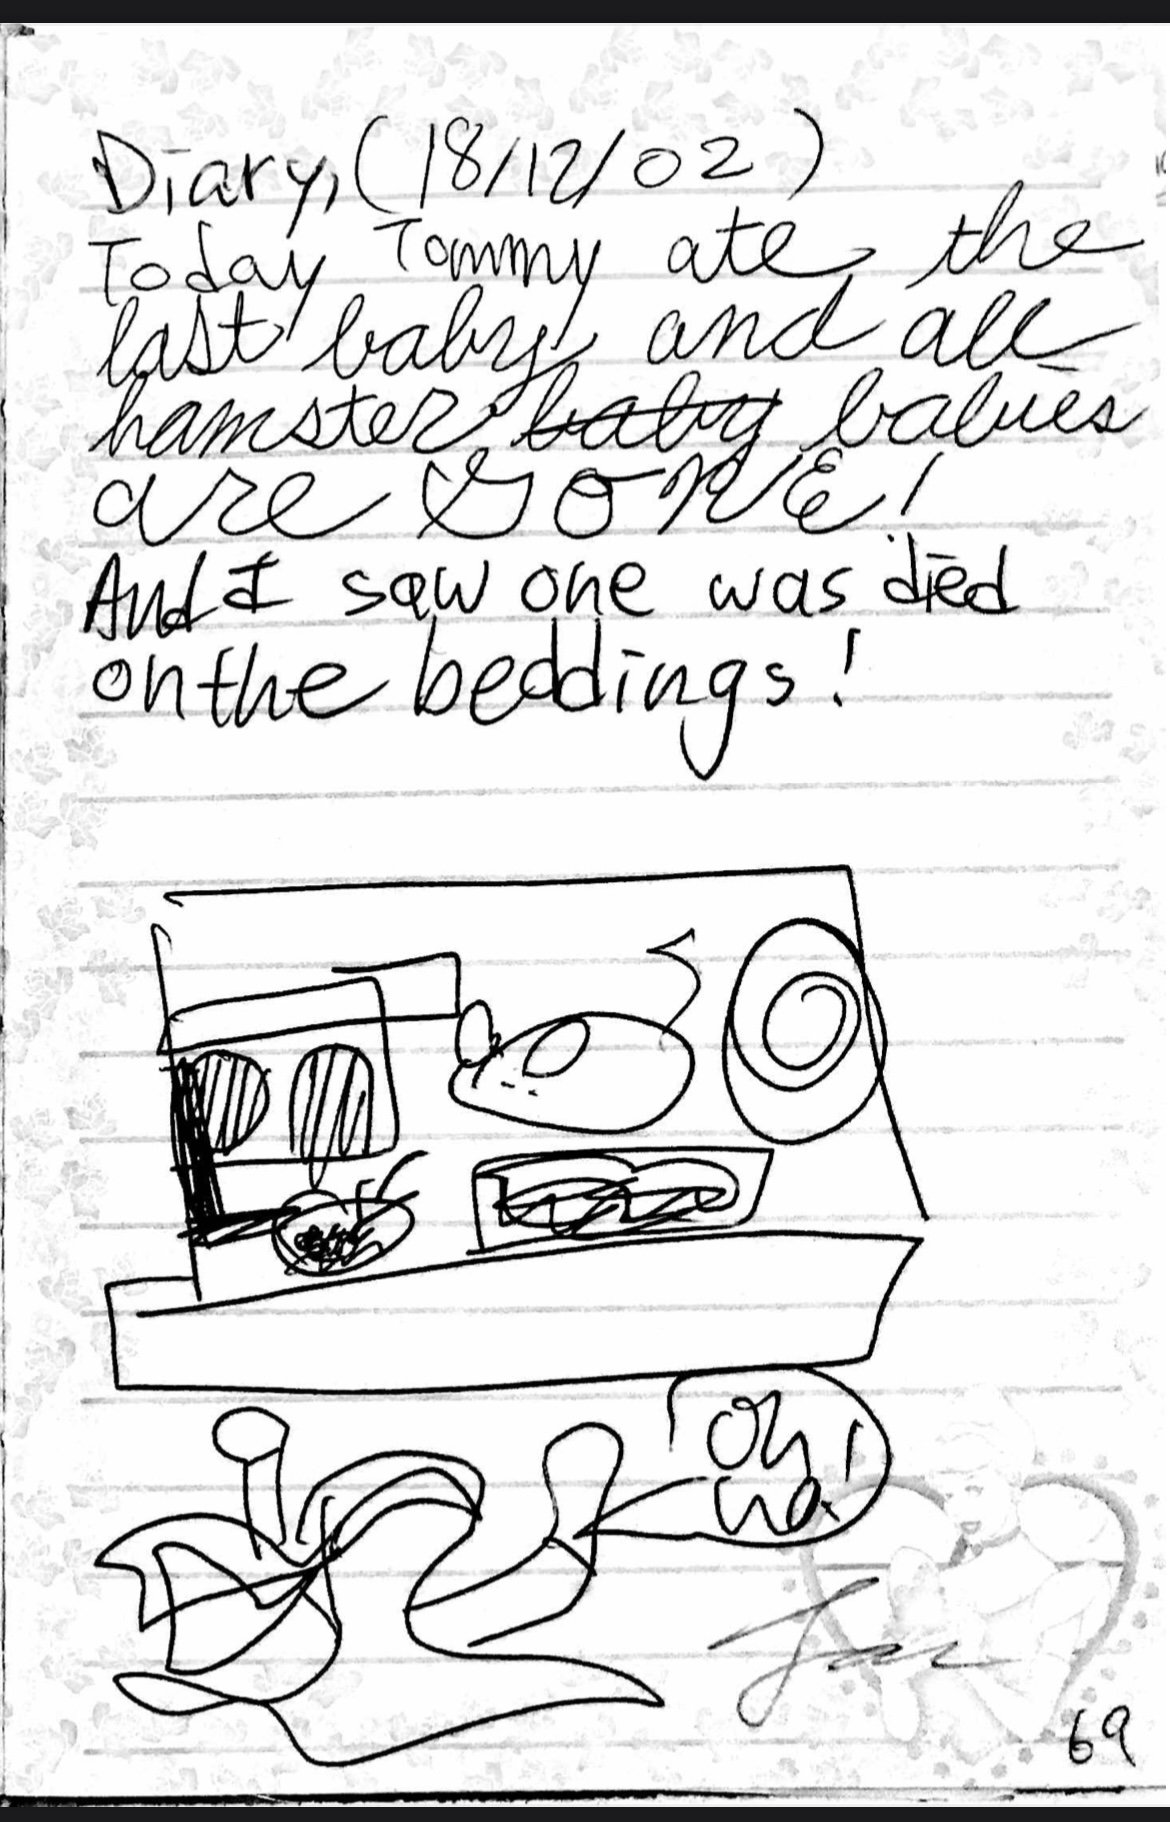 Diary, (18/12/02)
Today Tommy ate the
last baby, and all
hamster baby babies
are GONE!
And I saw one was died
on the beddings!
Oh
No!
69